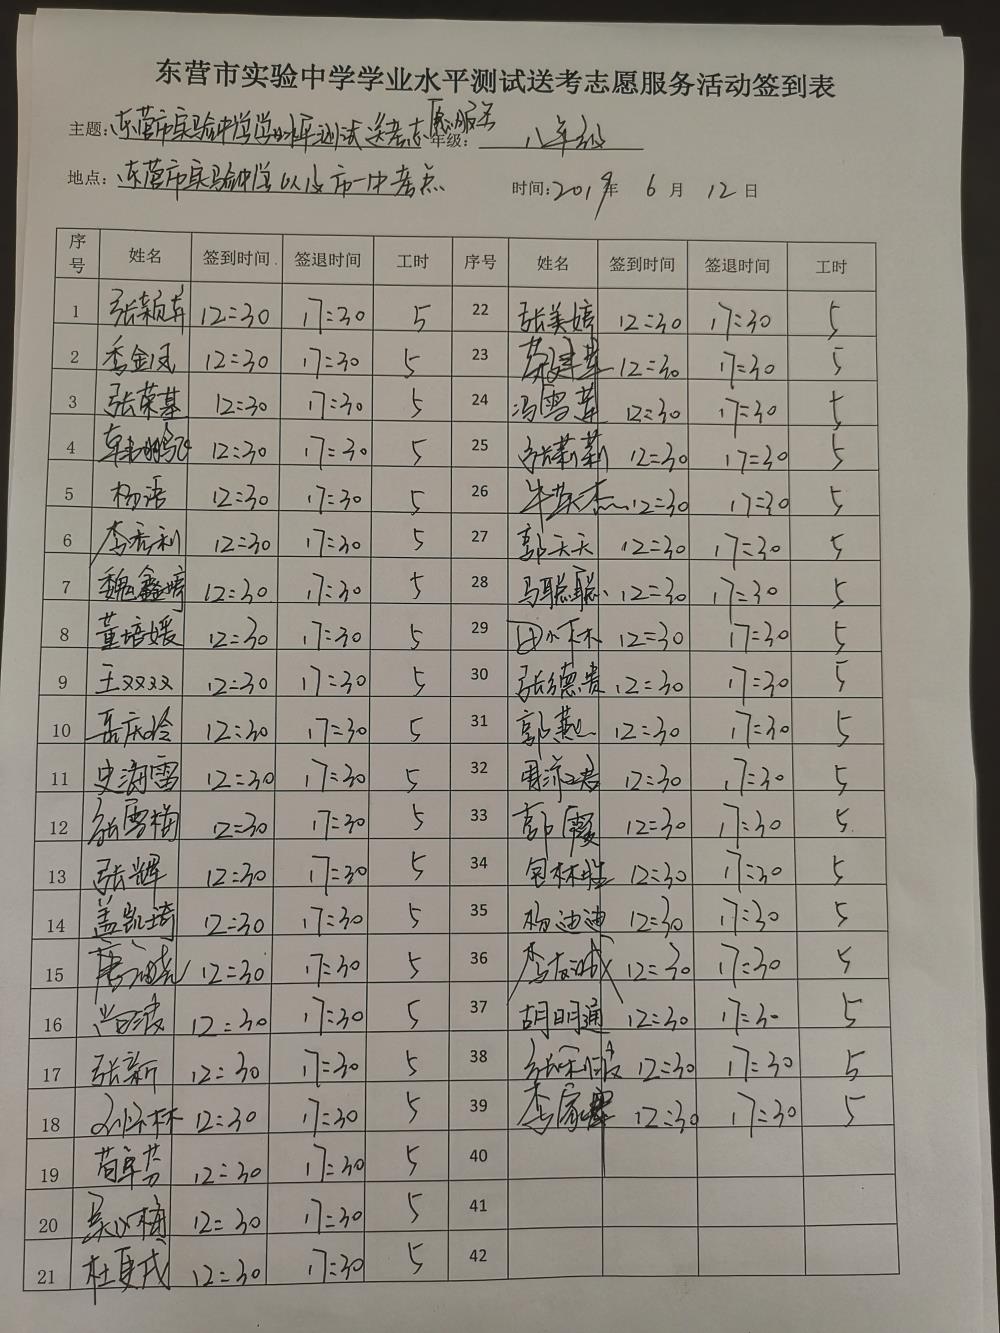 东营市实验中学学业水平测试送考志愿服务活动签到表
主题：东营市实验中学学业水平测试送考志愿服务 年级：八年级
地点：东营市实验中学以及市一中考点 时间：2019年 6月 12日
序号 姓名 签到时间 签退时间 工时 序号 姓名 签到时间 签退时间 工时
1 12:30 17:30 5 22 张美婷 12:30 17:30 5
2 季金凤 12:30 17:30 5 23 12:30 17:30 5
3 张荣基 12:30 17:30 5 24 冯雪莲 12:30 17:30 5
4 韩鹏飞 12:30 17:30 5 25 张莉莉 12:30 17:30 5
5 杨洁 12:30 17:30 5 26 12:30 17:30 5
6 李秀利 12:30 17:30 5 27 郭天天 12:30 17:30 5
7 魏鑫婷 12:30 17:30 5 28 马聪聪 12:30 17:30 5
8 董培媛 12:30 17:30 5 29 12:30 17:30 5
9 王双双 12:30 17:30 5 30 张德贵 12:30 17:30 5
10 岳庆玲 12:30 17:30 5 31 郭燕 12:30 17:30 5
11 史海雷 12:30 17:30 5 32 12:30 17:30 5
12 张雪梅 12:30 17:30 5 33 郭霞 12:30 17:30 5
13 张辉 12:30 17:30 5 34 12:30 17:30 5
14 盖凯琦 12:30 17:30 5 35 杨迪迪 12:30 17:30 5
15 12:30 17:30 5 36 李友诚 12:30 17:30 5
16 尚波 12:30 17:30 5 37 胡明通 12:30 17:30 5
17 张新 12:30 17:30 5 38 12:30 17:30 5
18 12:30 17:30 5 39 12:30 17:30 5
19 12:30 17:30 5 40
20 12:30 17:30 5 41
21 杜夏戎 12:30 17:30 5 42